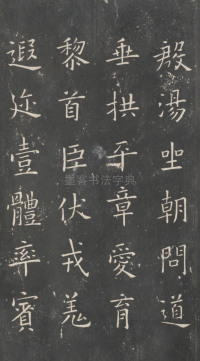 殷湯坐朝問道
垂拱平章愛育
黎首臣伏戎羌
遐迩壹體率賓
墨客书法字典